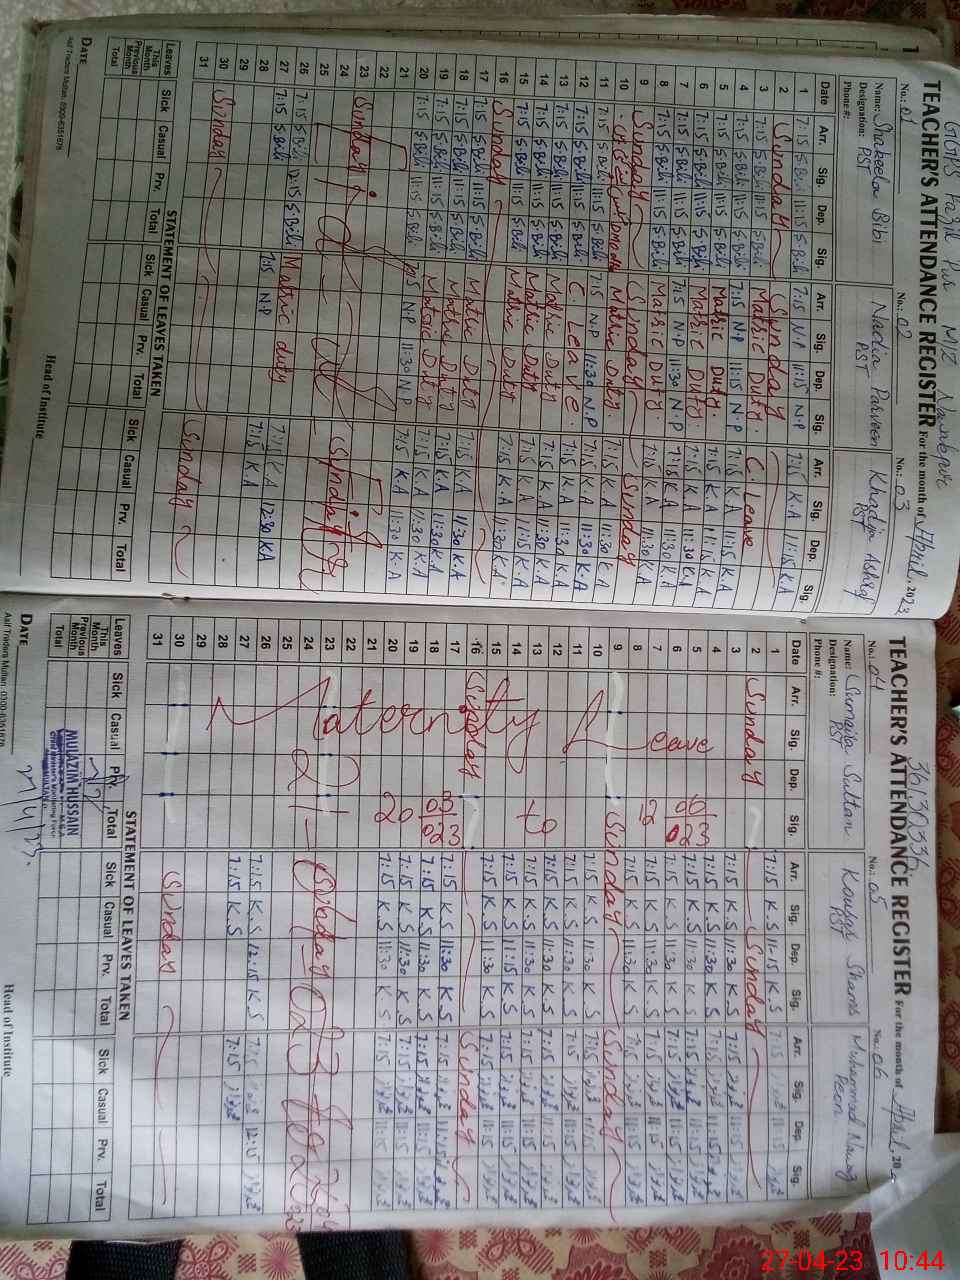 GGPS Fazil Pur M/Z Nawabpur
TEACHER'S ATTENDANCE REGISTER For the month of April, 2023
No.: 01 No.: 02 No.: 03
Name: Shakeela Bibi Nadia Parveen Khadija Ashraf
Designation: PST PST PST
Phone #:
Date Arr. Sig. Dep. Sig. Arr. Sig. Dep. Sig. Arr. Sig. Dep. Sig.
1 7:15 S.Bibi 11:15 S.Bibi 7:15 N.P 11:15 N.P 7:15 K.A 11:15 K.A
2 Sunday Sunday
3 7:15 S.Bibi 11:15 S.Bibi Matric Duty. C. Leave
4 7:15 S.Bibi 11:15 S.Bibi 7:15 N.P 11:15 N.P 7:15 K.A 11:15 K.A
5 7:15 S.Bibi 11:15 S.Bibi Matric Duty. 7:15 K.A 11:15 K.A
6 7:15 S.Bibi 11:15 S.Bibi Matric Duty. 7:15 K.A 11:30 K.A
7 7:15 S.Bibi 11:15 S.Bibi 7:15 N.P 11:30 N.P 7:15 K.A 11:30 K.A
8 7:15 S.Bibi 11:15 S.Bibi Matric Duty. 7:15 K.A 11:30 K.A
9 Sunday Sunday Sunday
10 Matric Duty. 7:15 K.A 11:30 K.A
11 7:15 S.Bibi 11:15 S.Bibi 7:15 N.P 11:30 N.P 7:15 K.A 11:30 K.A
12 7:15 S.Bibi 11:15 S.Bibi C. Leave. 7:15 K.A 11:30 K.A
13 7:15 S.Bibi 11:15 S.Bibi Matric Duty 7:15 K.A 11:30 K.A
14 7:15 S.Bibi 11:15 S.Bibi Matric Duty 7:15 K.A 11:15 K.A
15 7:15 S.Bibi 11:15 S.Bibi Matric Duty 7:15 K.A 11:30 K.A
16 Sunday
17 7:15 S.Bibi 11:15 S.Bibi Matric Duty 7:15 K.A 11:30 K.A
18 7:15 S.Bibi 11:15 S.Bibi Matric Duty 7:15 K.A 11:30 K.A
19 7:15 S.Bibi 11:15 S.Bibi Matric Duty 7:15 K.A 11:30 K.A
20 7:15 S.Bibi 11:15 S.Bibi 7:15 N.P 11:30 N.P 7:15 K.A 11:30 K.A
21
22
23 Sunday Sunday
24
25
26 7:15 S.Bibi 12:15 S.Bibi Matric duty 7:15 K.A 12:30 K.A
27 7:15 S.Bibi 7:15 N.P 7:15 K.A
28
29
30 Sunday Sunday
31
Leaves Sick Casual Prv. Total Sick Casual Prv. Total Sick Casual Prv. Total
STATEMENT OF LEAVES TAKEN
This Month
Previous Month
Total
DATE
Head of Institute
Asif Traders Multan. 0300-6351678
36130336
TEACHER'S ATTENDANCE REGISTER For the month of April, 20
No.: 04 No.: 05 No.: 06
Name: Sumaija Sultan Kausar Shams Muhammad Nawaz
Designation: PST PST Peon
Phone #:
Date Arr. Sig. Dep. Sig. Arr. Sig. Dep. Sig. Arr. Sig. Dep. Sig.
1 7:15 K.S 11:15 K.S 7:15 11:15
2 Sunday Sunday
3 7:15 K.S 11:30 K.S 7:15 11:15
4 7:15 K.S 11:30 K.S 7:15 11:15
5 7:15 K.S 11:30 K.S 7:15 11:15
6 7:15 K.S 11:30 K.S 7:15 11:15
7 7:15 K.S 11:30 K.S 7:15 11:15
8 7:15 K.S 11:30 K.S 7:15 11:15
9 Sunday Sunday
10 7:15 K.S 11:30 K.S 7:15 11:15
11 7:15 K.S 11:30 K.S 7:15 11:15
12 7:15 K.S 11:30 K.S 7:15 11:15
13 7:15 K.S 11:30 K.S 7:15 11:15
14 7:15 K.S 11:15 K.S 7:15 11:15
15 7:15 K.S 11:30 K.S 7:15 11:15
16 Sunday Sunday
17 7:15 K.S 11:30 K.S 7:15 11:15
18 7:15 K.S 11:30 K.S 7:15 11:15
19 7:15 K.S 11:30 K.S 7:15 11:15
20 7:15 K.S 11:30 K.S 7:15 11:15
21
22
23
24
25
26 7:15 K.S 12:15 K.S 7:15 12:15
27 7:15 K.S 7:15
28
29
30 Sunday
31
Maternity Leave
12 06 023
To
20 03 023
Leaves Sick Casual Prv. Total Sick Casual Prv. Total Sick Casual Prv. Total
STATEMENT OF LEAVES TAKEN
This Month
Previous Month
Total
MULAZIM HUSSAIN
M.E.A
Chief Minister's Monitoring Force
27/4/23.
DATE
Head of Institute
Asif Traders Multan. 0300-6351678
27-04-23 10:44